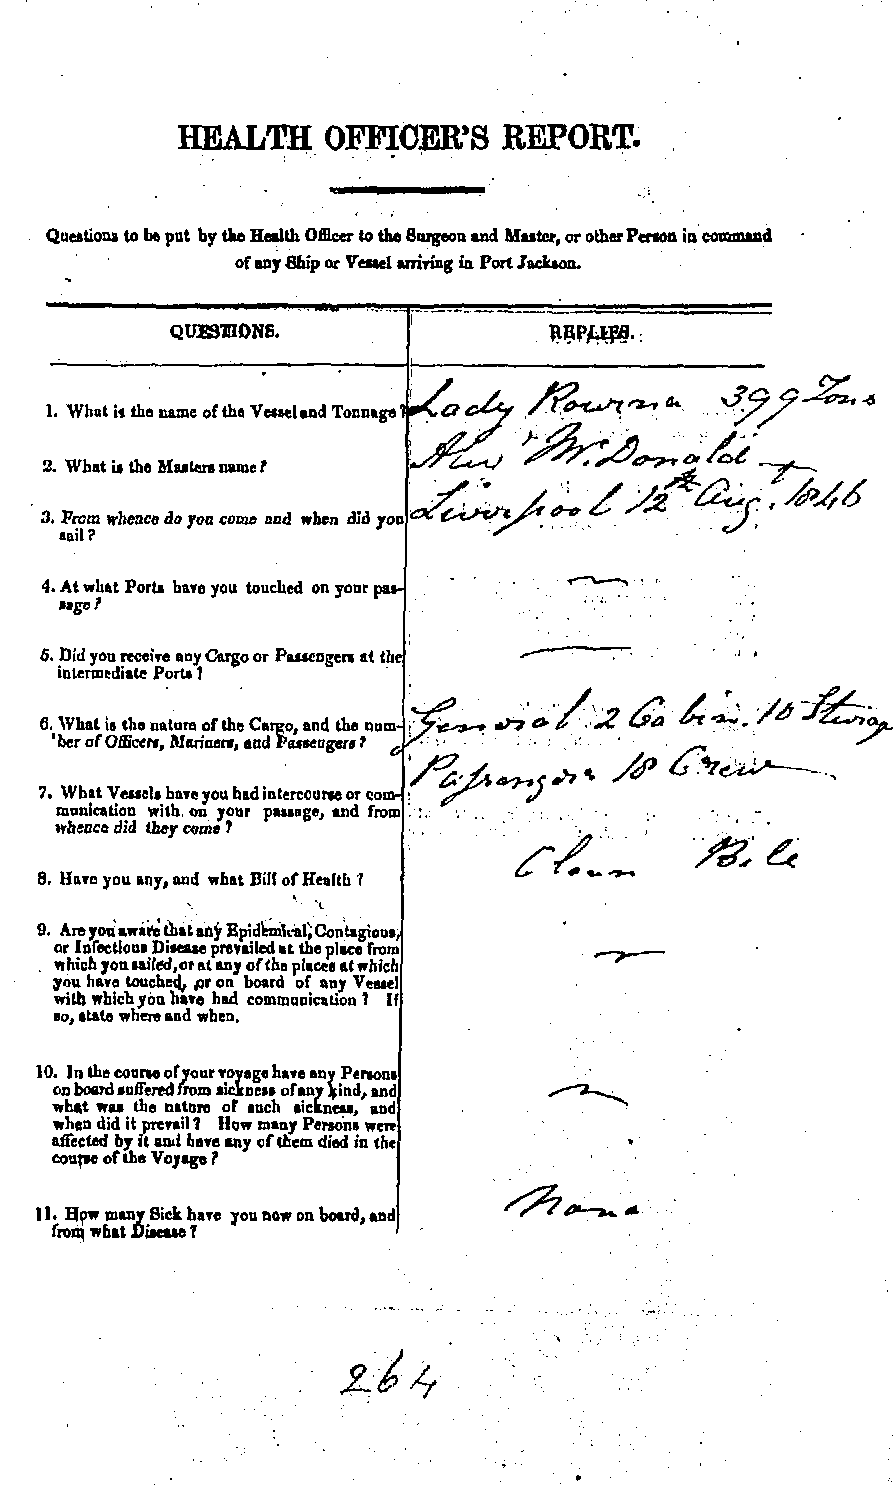 HEALTH OFFICER'S REPORT.
Questions to be put by the Health Officer to the Surgeon and Master, or other Person in command
of any Ship or Vessel arriving in Port Jackson.
QUESTIONS.
REPLIES.
1. What is the name of the Vessel and Tonnage?
Lady Rowena 399 Tons
2. What is the Masters name?
Alexr McDonald
3. From whence do you come and when did you
sail?
Liverpool 12th Aug. 1846
4. At what Ports have you touched on your pas-
sage?
5. Did you receive any Cargo or Passengers at the
intermediate Ports?
6. What is the nature of the Cargo, and the num-
ber of Officers, Mariners, and Passengers?
General 2 Cabin. 10
Passengers 18 Crew
7. What Vessels have you had intercourse or com-
munication with on your passage, and from
whence did they come?
8. Have you any, and what Bill of Health?
Clean
9. Are you aware that any Epidemical, Contagious,
or Infectious Disease prevailed at the place from
which you sailed, or at any of the places at which
you have touched, or on board of any Vessel
with which you have had communication? If
so, state where and when.
10. In the course of your voyage have any Persons
on board suffered from sickness of any kind, and
what was the nature of such sickness, and
when did it prevail? How many Persons were
affected by it and have any of them died in the
course of the Voyage?
11. How many Sick have you now on board, and
from what Disease?
None
264